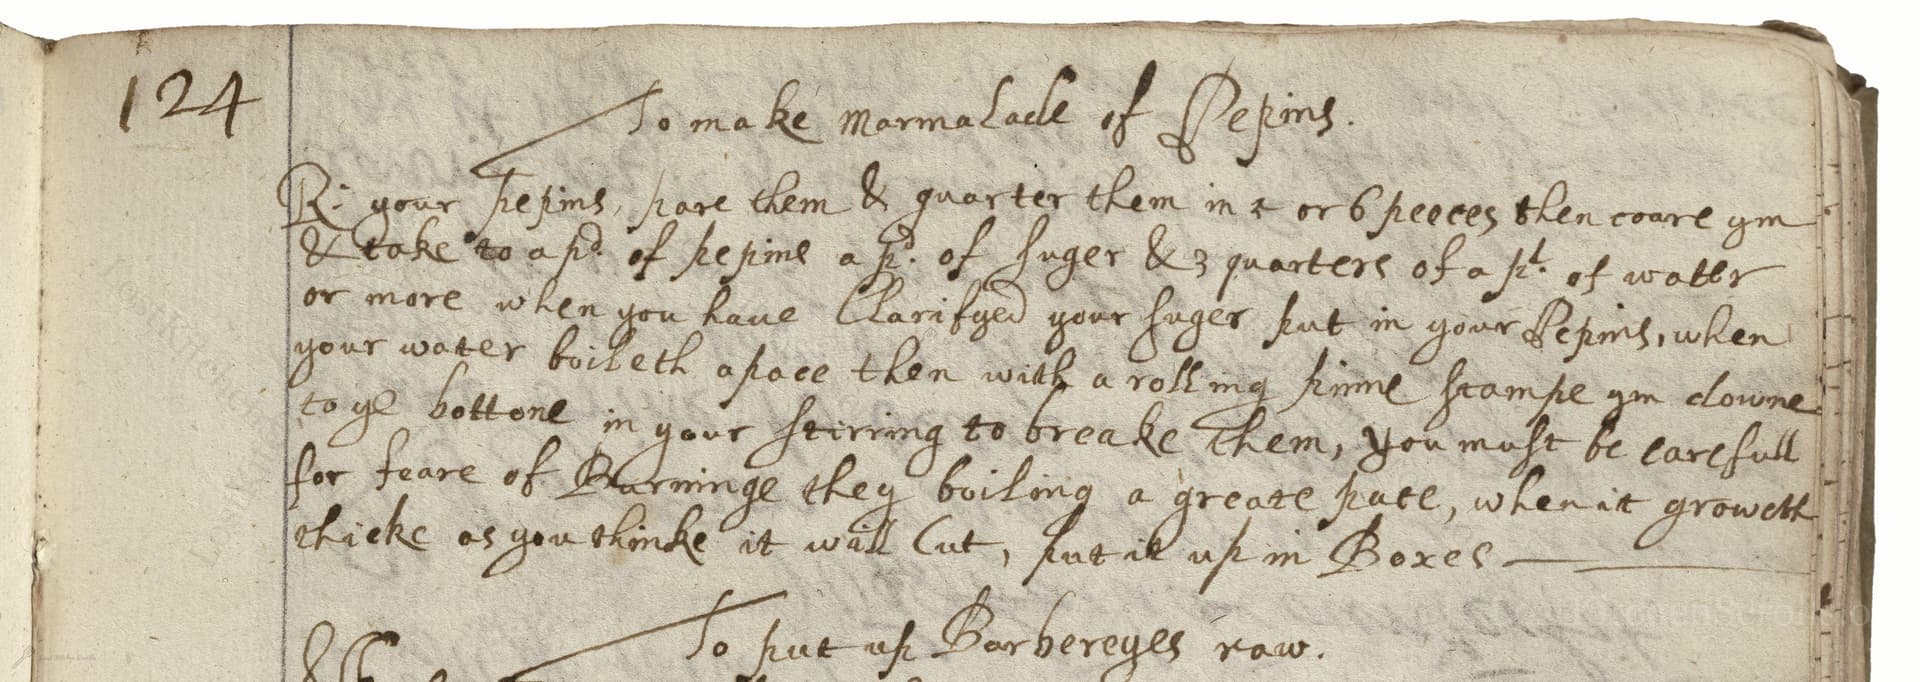 124
To make Marmalade of Pepins.
R: your pepins, pare them & quarter them in 4 or 6 peeces then coare ym
& take to a pd. of pepins a pd. of suger & 3 quarters of a pt. of water
or more when you have Clarifyed your suger put in your Pepins, when
your water boileth apace then with a rolling pinne stampe ym downe
to ye bottone in your stirring to breake them, you must be carefull
for feare of Burninge they boiling a greate pace, when it groweth
thicke as you thinke it will Cut, put it up in Boxes
To put up Barbereyes raw.